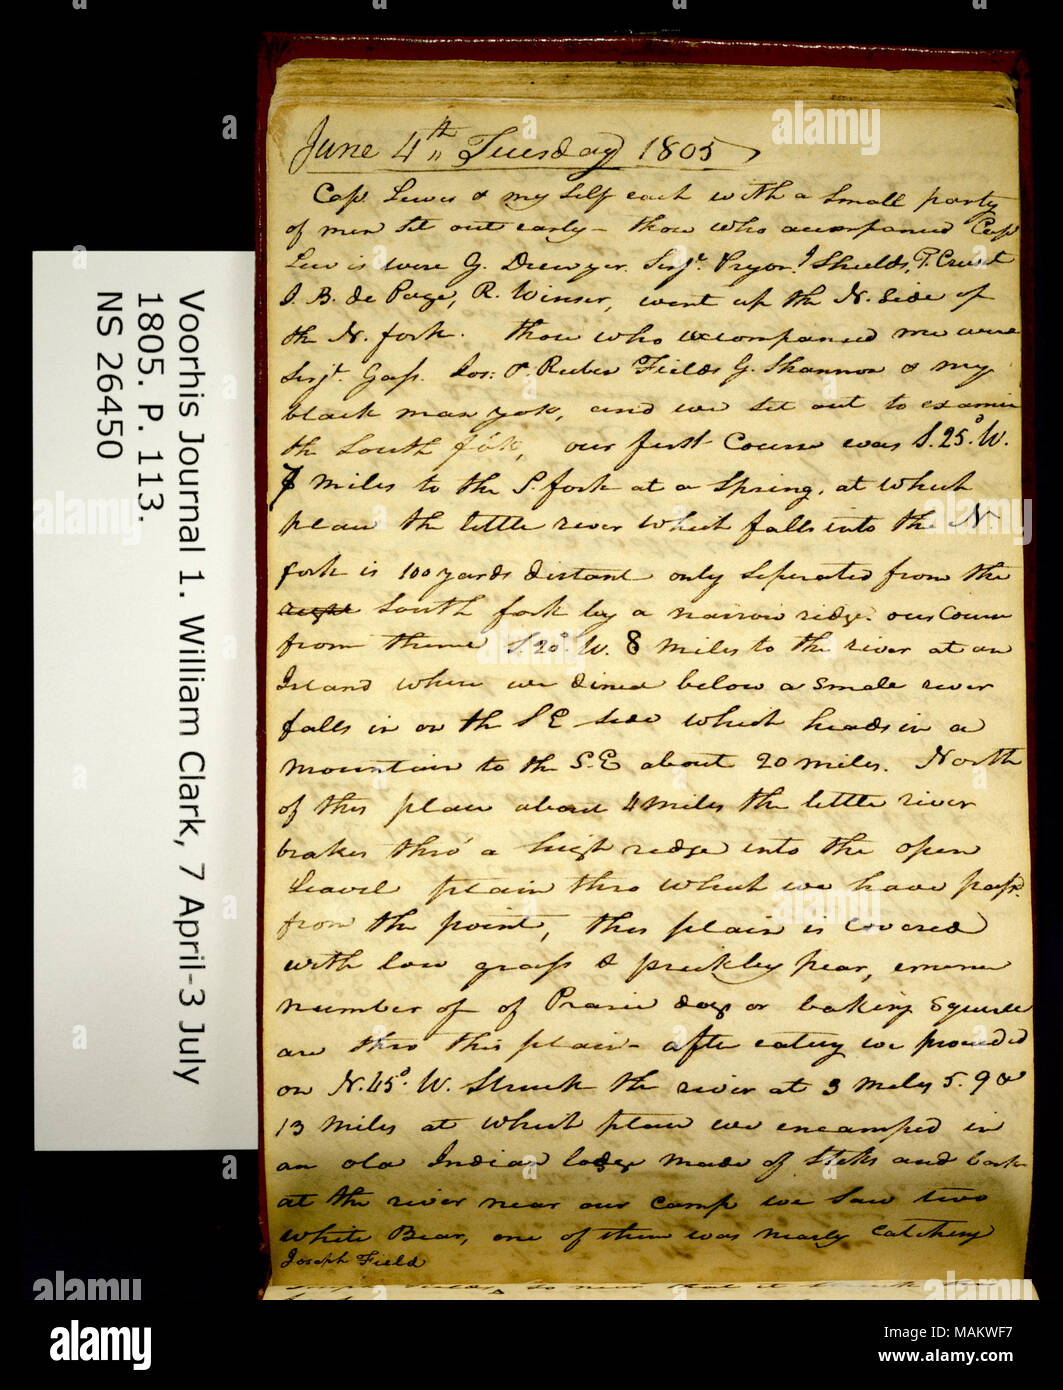 June 4th Tuesday 1805
Capt. Lewis & my Self each with a Small party
of men Set out early - those who accompanied Capt
Lewis were G. Drewyer Serjt. Pryor, J Shields, P. Crusat
J. B. de Page, R. Winser, went up the N. Side of
the N. fork. those who accompanied me were
Serjt. Gass Jos: & Ruben Fields G. Shannon & my
black man york, and we Set out to examin
the South fork, our first Course was S. 25° W.
7 miles to the S. fork at a Spring, at which
place the little river which falls into the N.
fork is 100 yards distant only Seperated from the
right South fork by a narrow ridge. our Course
from thence S. 20° W. 8 miles to the river at an
Island where we dined below a Small river
falls in on the S E Side which heads in a
mountain to the S. E about 20 miles. North
of this place about 4 miles the little river
brakes thro' a high ridge into the open
Leavel plain thro which we have passd.
from the point, this plain is Covered
with low grass & prickley pear,
number of of Prarie dogs or barking Squirel
are thro this plain - after eateing we proceeded
on N. 45° W. Struck the river at 3 miles 5. 9 &
13 miles at which place we encamped in
an old Indian lodge made of Stiks and bark
at the river near our camp we Saw two
white Bear, one of them was nearly Catching
Joseph Field
Voorhis Journal 1. William Clark, 7 April-3 July
1805. P. 113.
NS 26450
alamy
Image ID: MAKWF7
www.alamy.com